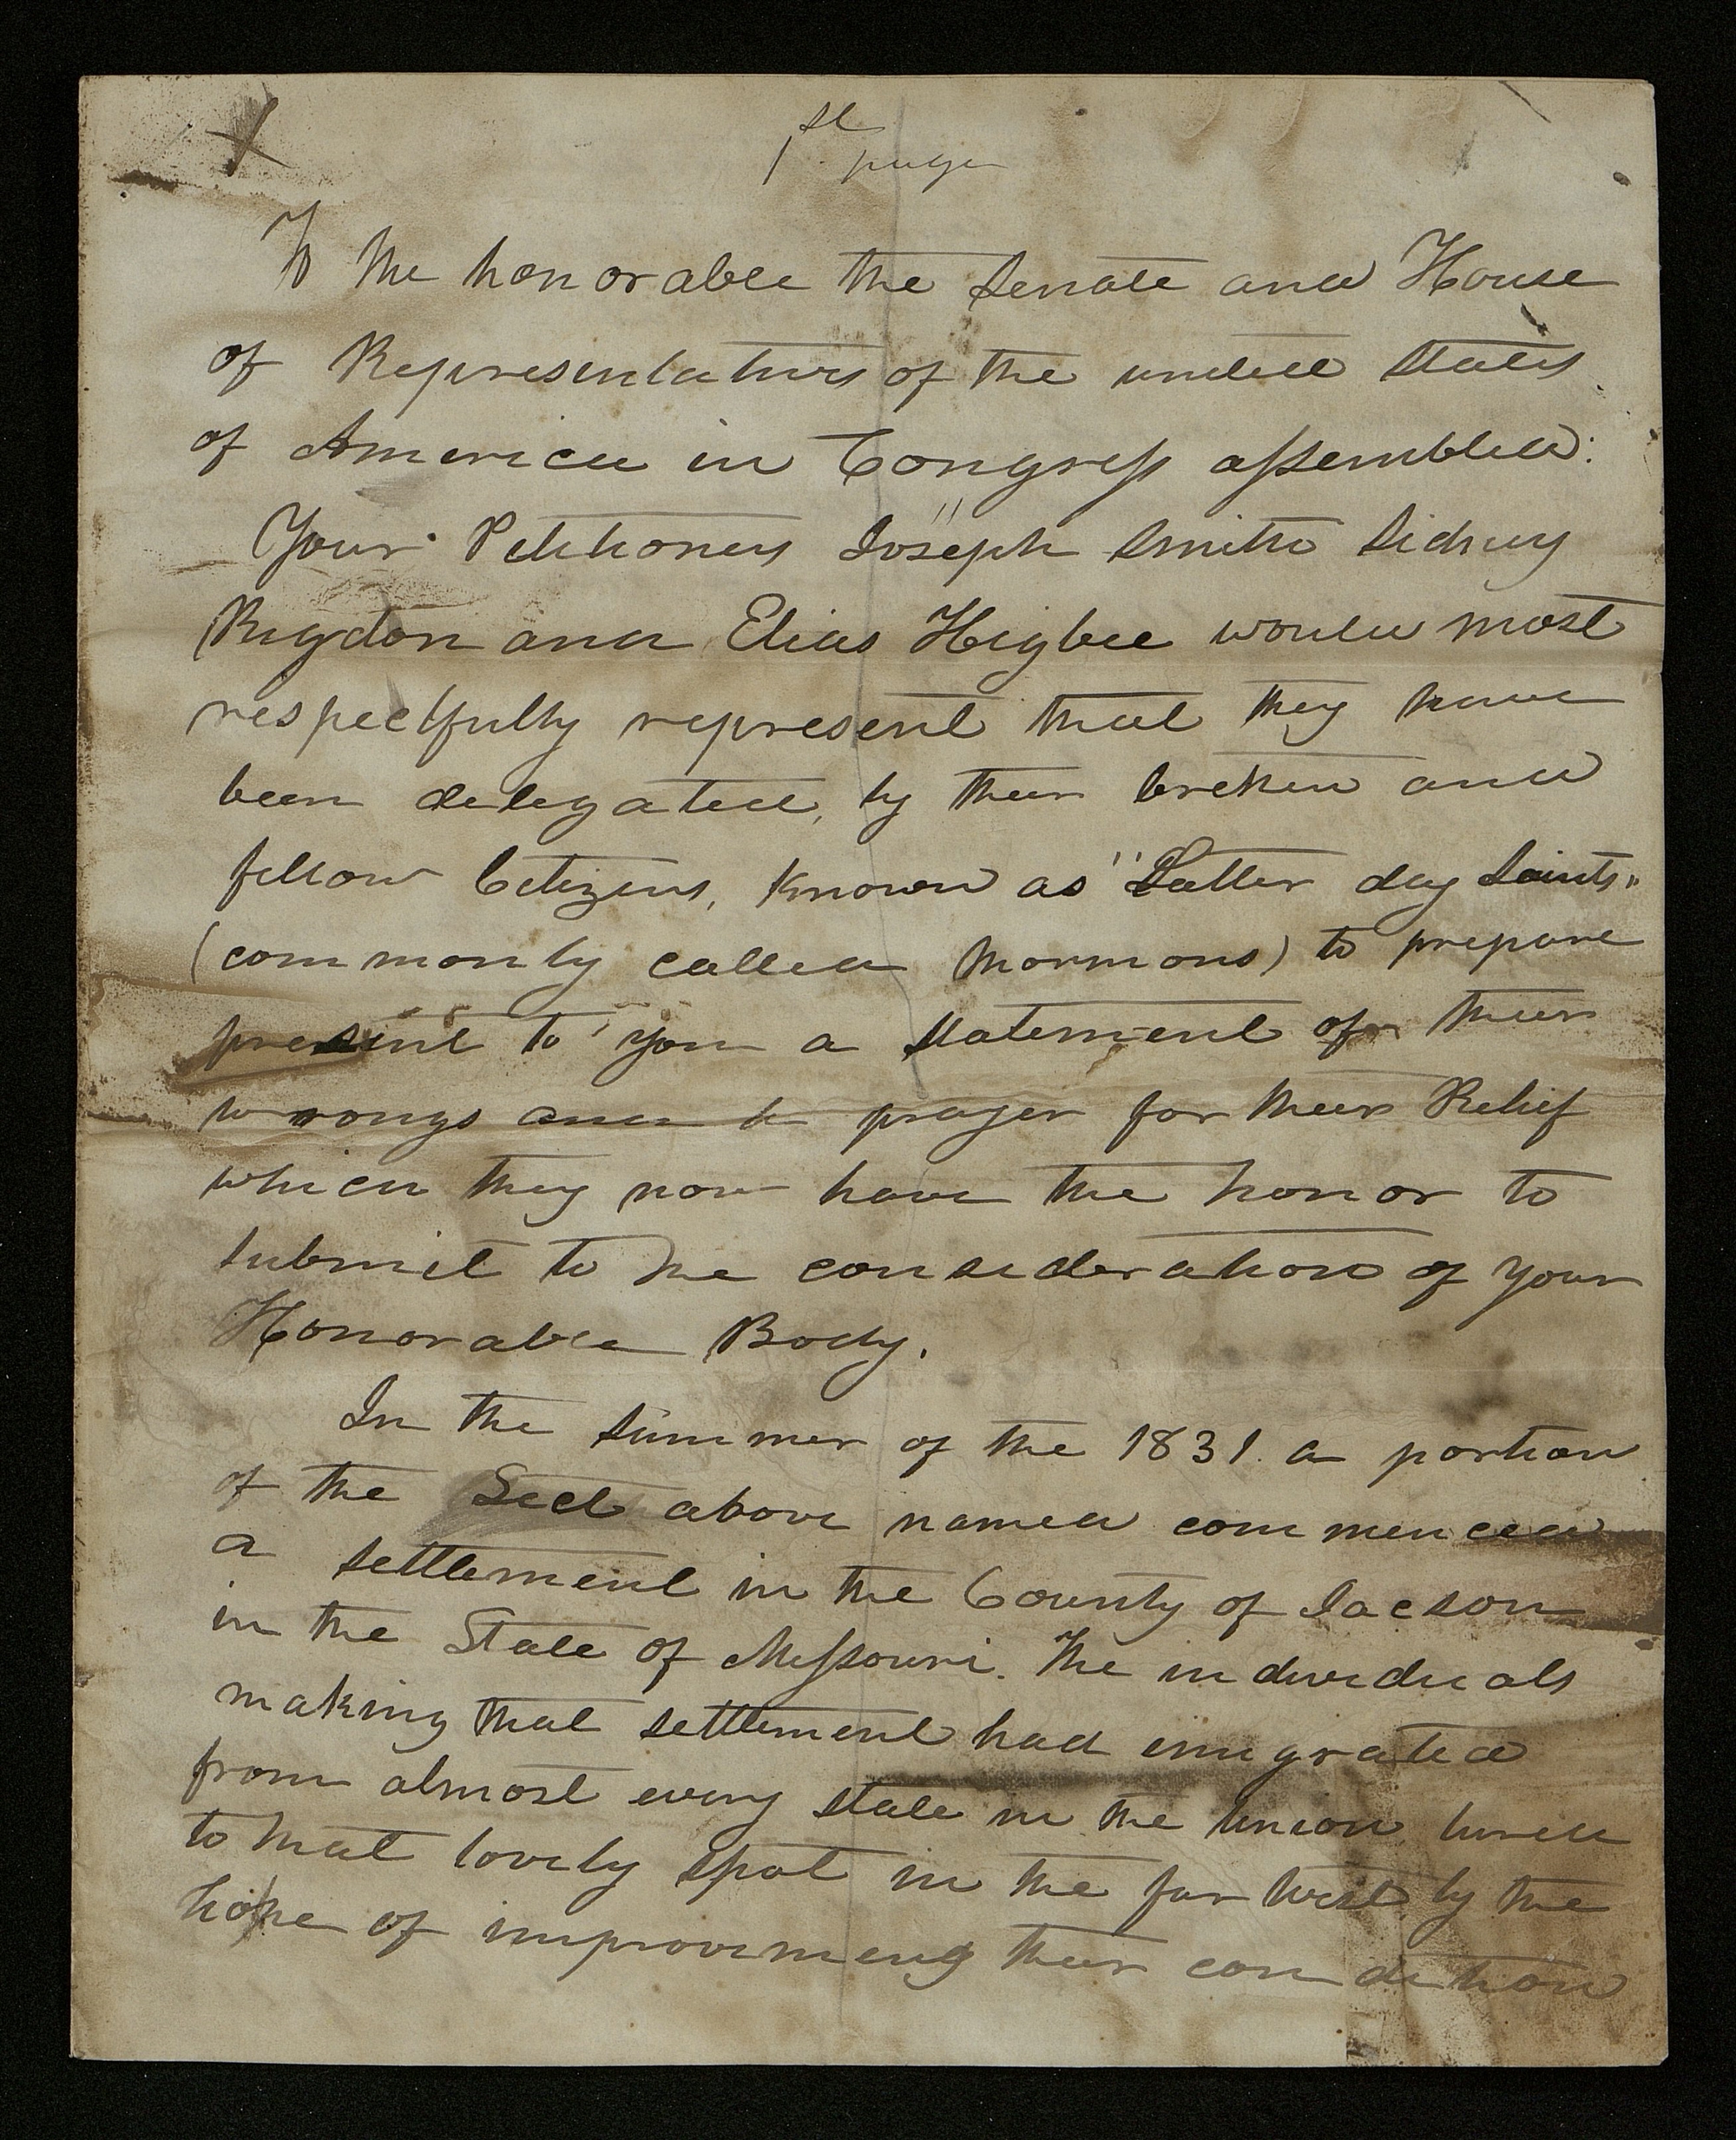 X
1st page
To the honorable the Senate and House
of Representatives of the united States
of America in Congress assembled:
Your Petitioners Joseph Smith Sidney
Rigdon and Elias Higbee would most
respectfully represent that they have
been delegated, by their brethren and
fellow Citizens, known as "Latter day Saints"
(commonly called Mormons) to prepare
present to you a statement of their
wrongs and a prayer for their Relief
which they now have the honor to
submit to the consideration of your
Honorable Body.
In the summer of the 1831. a portion
of the Sect above named commenced
a settlement in the County of Jacson
in the State of Missouri. The individuals
making that settlement had emigrated
from almost every state in the Union lured
to that lovely spot in the far West by the
hope of improveming their condition